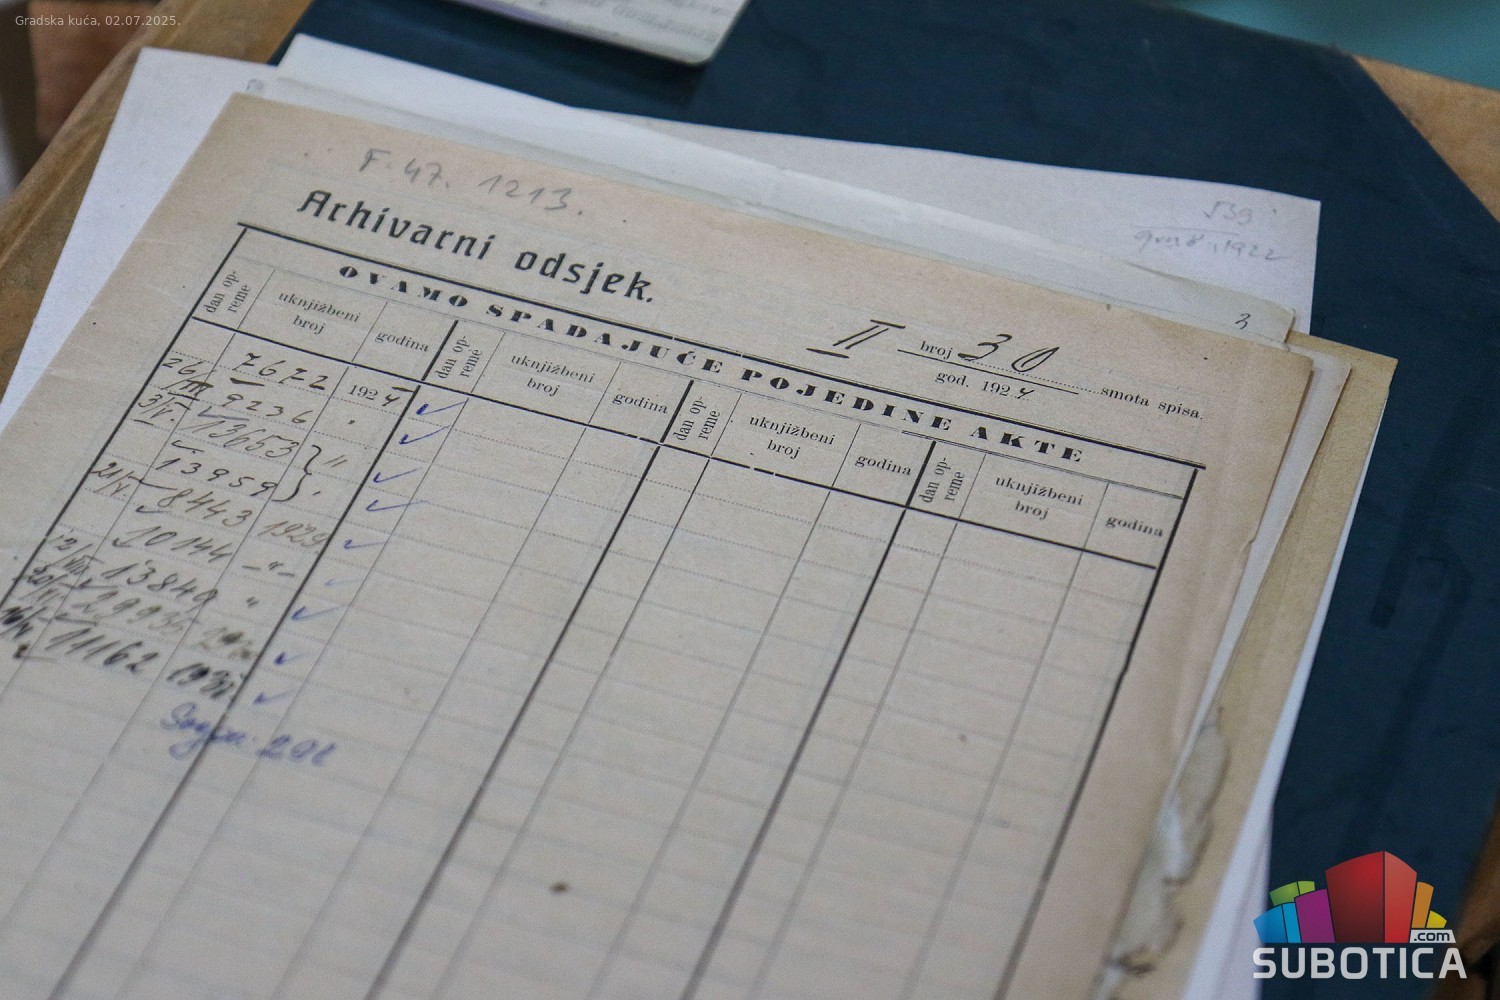 Gradska kuća, 02.07.2025.
F. 47. 1213.
Arhivarni odsjek.
II broj 30
god. 1924 smota spisa.
OVAMO SPADAJUĆE POJEDINE AKTE
dan opreme uknjižbeni broj godina dan opreme uknjižbeni broj godina dan opreme uknjižbeni broj godina dan opreme uknjižbeni broj godina
7672 1924
9236
13653 "
13959
8443 1929
10144 —"—
13840 "
11162
3
SUBOTICA.com